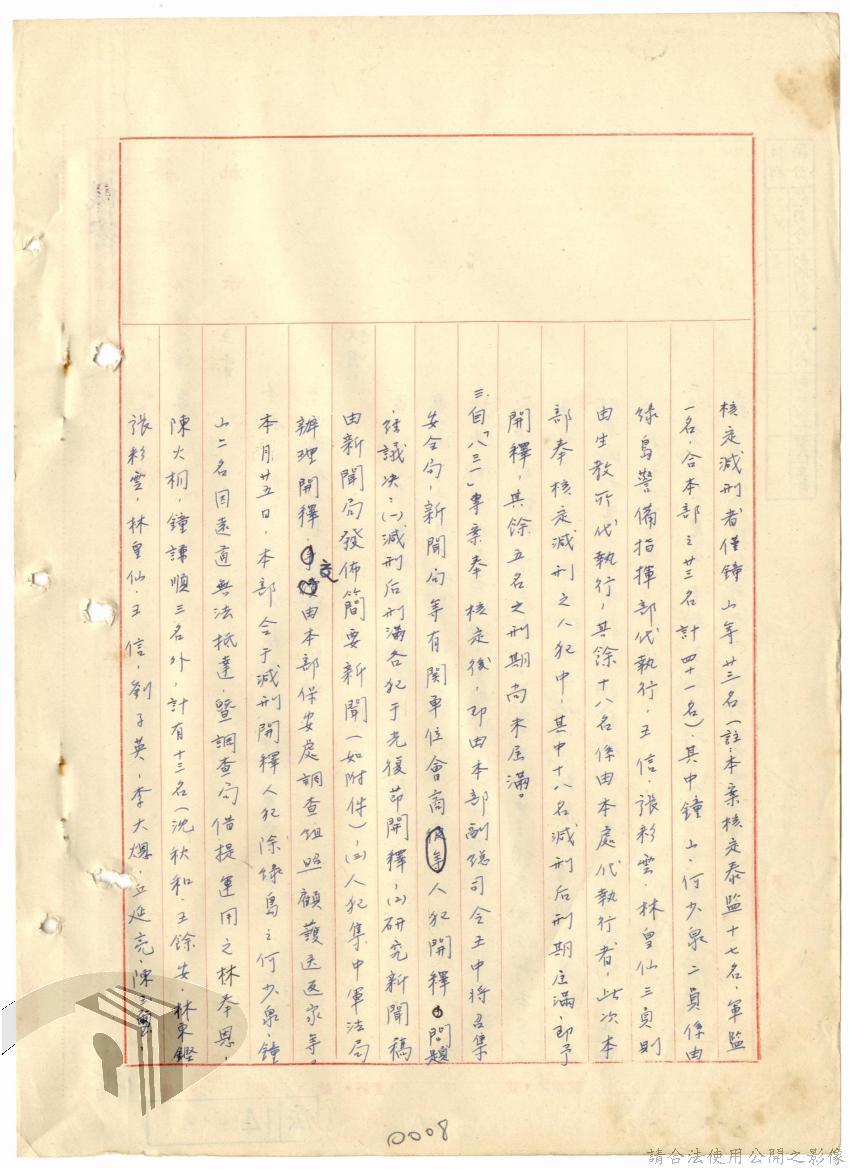 核定減刑者僅鐘 山等廿三名(註:本案核定泰監十七名,軍監
一名,合本部之廿三名計四十一名)。其中鐘 山、何少泉二員係由
綠島警備指揮部代執行,王 信、張彩雲、林皇仙三員則
由生教所代執行,其餘十八名係由本處代執行者,此次本
部奉 核定減刑之人犯中,其中十八名減刑后刑期屆滿,即予
開釋,其餘五名之刑期尚未屆滿。
三、自「八三一」專案奉 核定後,即由本部副總司令王中將召集
安全局,新聞局等有関單位會商人犯開釋問題
,經議决:(一)減刑后刑滿各犯于光復節開釋,(二)研究新聞稿
由新聞局發佈簡要新聞(如附件),(三)人犯集中軍法局
辦理開釋,交由本部保安處調查組照顧護送返家等。
本月廿五日,本部合于減刑開釋人犯除綠島之何少泉,鐘
山二名因遠道無法抵達,暨調查局借提運用之林奉恩,
陳火桐,鐘謙順三名外,計有十三名(沈秋和、王餘安,林東鏗
張彩雲,林皇仙、王 信,劉子英,李大 、丘延亮、陳三 、
0008
請合法使用公開之影像